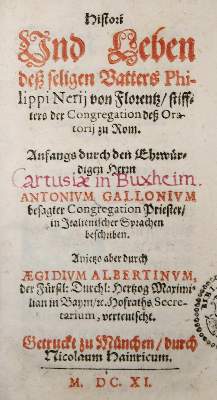 Histori
Und Leben
deß seligen Vatters Phi-
lippi Nerij von Florentz/ stiff-
ters der Congregation deß Ora-
torij zu Rom.
Anfangs durch den Ehrwür-
digen Herrn
Cartusiæ in Buxheim.
ANTONIVM GALLONIVM
besagter Congregation Priester/
in Italienischer Sprachen
beschriben.
Anjetzo aber durch
ÆGIDIVM ALBERTINVM,
der Fürstl: Durchl: Hertzog Maximi-
lian in Bayrn/ ec. Hofraths Secre-
tarium, verteutscht.
Getruckt zu München/ durch
Nicolaum Hainricum.
M. DC. XI.